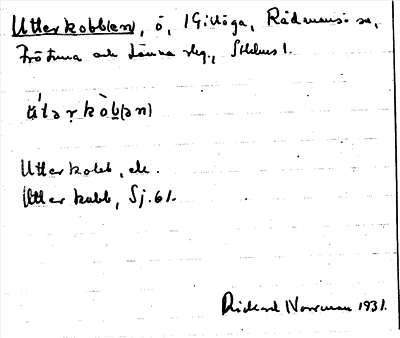 Utterkobb(en), ö, i Gillöga, Rådmansö sn,
Frötuna och Länna slg., Sthlms l.
út ə ṛ k ò b̲ (ə n)
Utterkobb, ek.
Utterkobb, Sj. 61.
Rickard Norrman 1931.